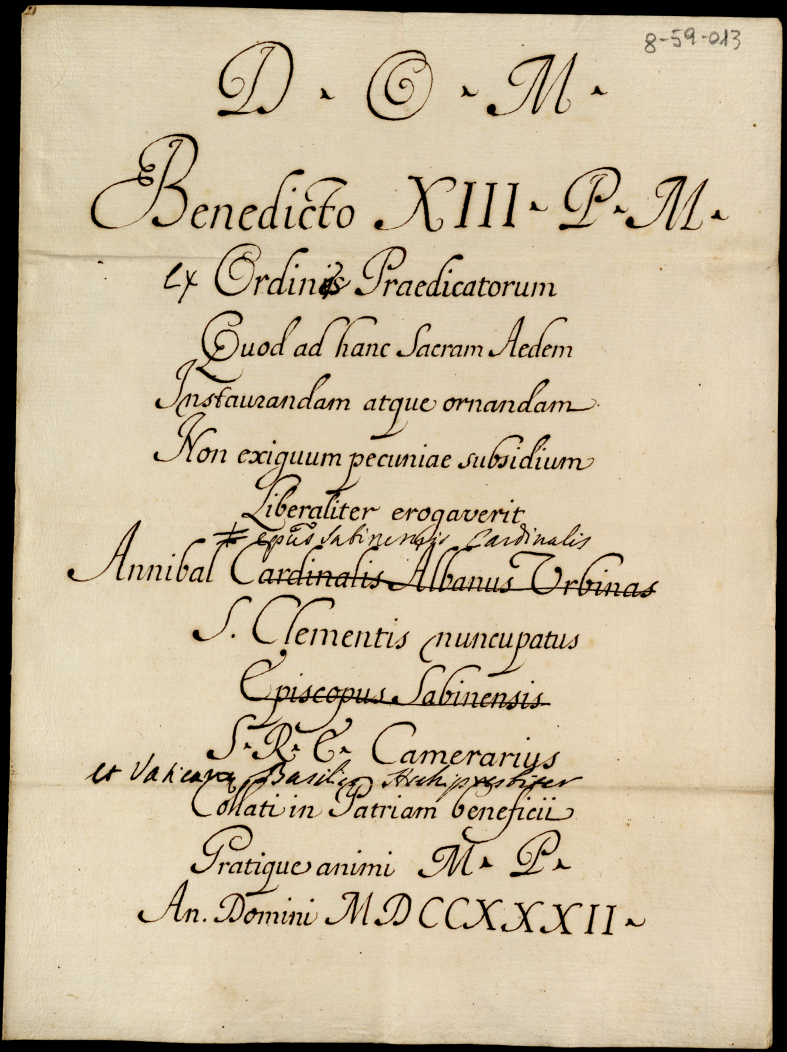 8-59-013
D. O. M.
Benedicto XIII. P. M.
ex Ordinis Praedicatorum
Quod ad hanc Sacram Aedem
Instaurandam atque ornandam
Non exiguum pecuniae subsidium
Liberaliter erogaverit
epũs Sabinensis Cardinalis
Annibal Cardinalis Albanus Urbinas
S. Clementis nuncupatus
Episcopus Sabinensis
S. R. E. Camerarius
et Vaticanę Basilicę Archipresbiter
Collati in Patriam beneficii
Gratique animi M. P.
An. Domini MDCCXXXII.